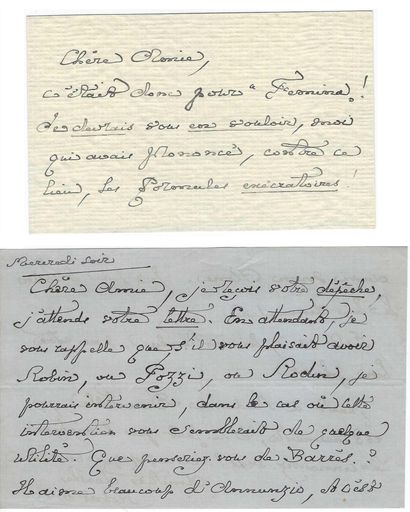 Chère Amie,
c'était donc pour "Femina"!
Je devrais vous en vouloir, moi
qui avais prononcé, contre ce
lieu, les Formules exécratoires!
Mercredi soir
Chère Amie, je reçois votre dépêche,
j'attends votre lettre. En attendant, je
vous rappelle que s'il vous plaisait avoir
Robin, ou Pozzi, ou Rodin, je
pourrais intervenir, dans le cas où cette
intervention vous semblerait de quelque
utilité. Que penseriez vous de Barrès.?
Il aime beaucoup d'Annunzio, et